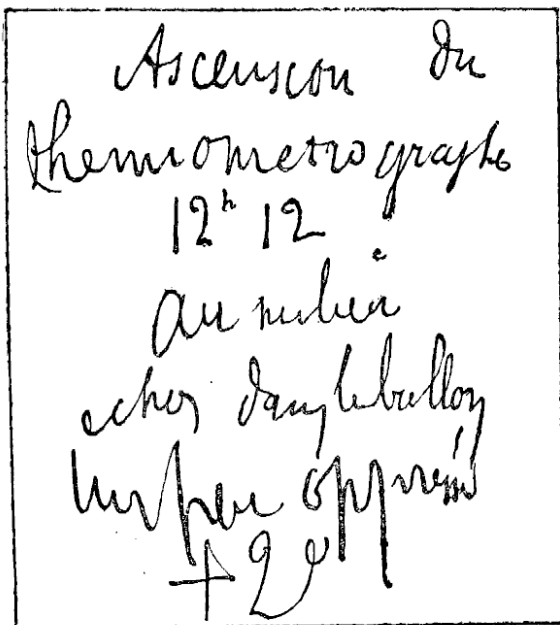 Ascension du
thermometrographe
12h 12
au milieu
echos dans le ballon
un peu oppressé
+ 2°